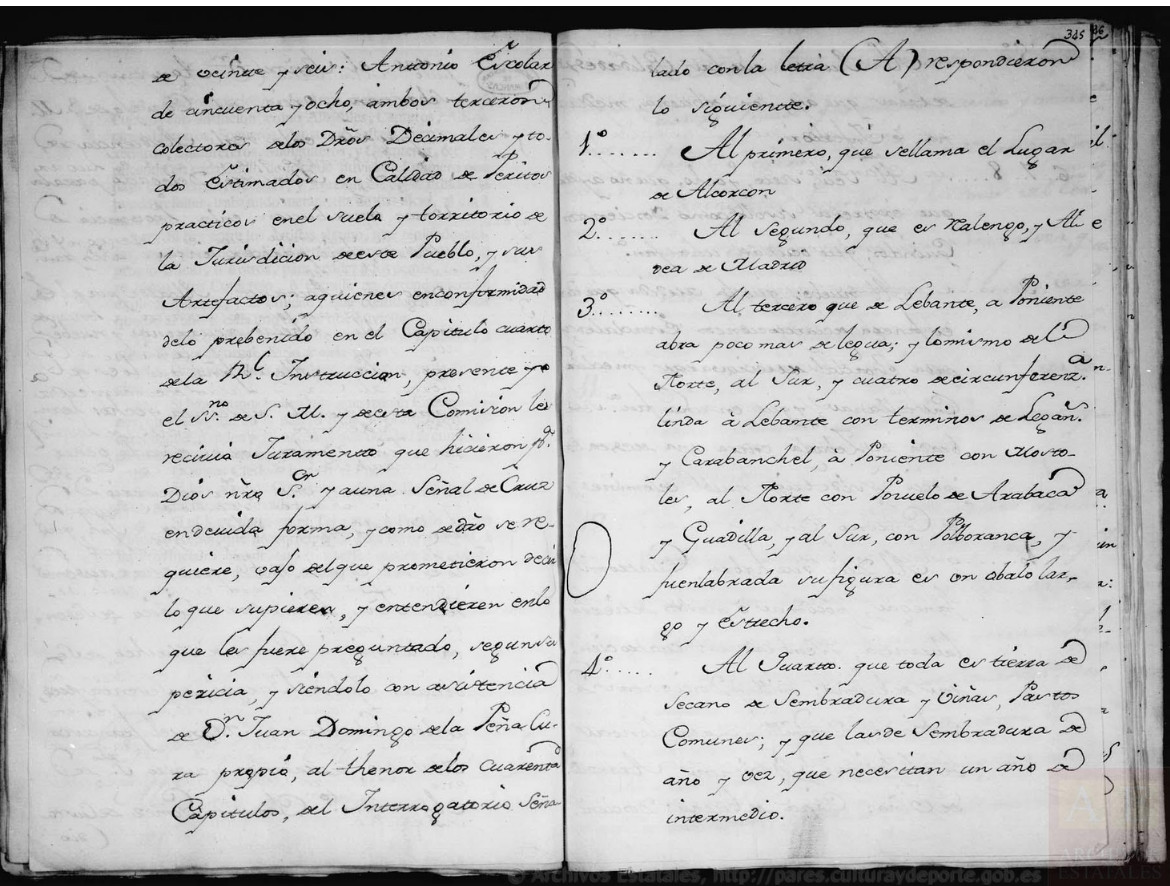 de veinte y seis: Antonio Escolar
de cincuenta y ocho, ambos terceron
Colectores delos Dr̃os Decimales y to-
dos estimados en Calidad de Peritos
practicos enel suelo y torritorio de
la Jurisdicion deeste Pueblo, y sus
Artefactos; aquienes enconformidad
delo prebenido en el Capitulo cuarto
dela Rl. Instruccion, presente yo
el SSno. de S. M. y deesta Comision les
recivia Juramento que hicieron pr.
Dios nr̃o Sor. y auna Señal de Cruz
endevida forma, y como de dr̃o se re-
quiere, vajo del que prometieron decir
lo que supieren, y entendieren enlo
que les fuere preguntado, segun su
pericia, y siéndolo con asistencia
de Dn. Juan Domingo dela Peña Cu-
ra propio, al thenor delos cuarenta
Capitulos, del Interrogatorio Seña
345
lado con la letra (A) respondieron
lo siguiente.
1º....... Al primero, que sellama el Lugar
de Alcorcon
2º...... Al Segundo, que es Ralengo, y Al
dea de Madrid
3º........ Al tercero que de Lebante, a Poniente
abra poco mas de legua; y lo mismo de el
Norte, al Sur, y cuatro de circunferenz.a
linda â Lebante con terminos de Legãn.
y Carabanchel, à Poniente con Mosto-
les, al Norte con Pozuelo de Arabaca
y Guadilla, y al Sur, con Polboranca, y
fuenlabrada su figura es un obalo lar-
go y estrecho.
4º...... Al Quarto. que toda es tierra de
Secano de Sembradura y Viñas, Pastos
Comunes; y que las de Sembradura de
año y vez, que necesitan un año de
intermedio.
© Archivos Estatales, http://pares.culturaydeporte.gob.es